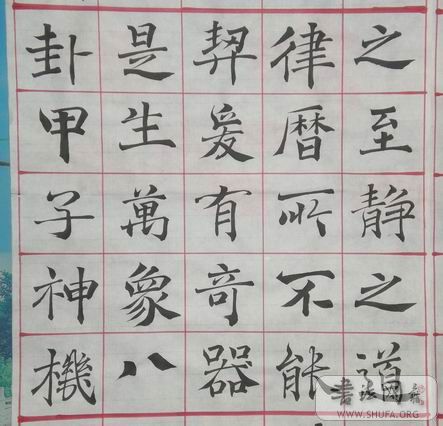 之至静之道
律暦所不能
契爰有奇器
是生萬象八
卦甲子神機
書法网
WWW.SHUFA.ORG